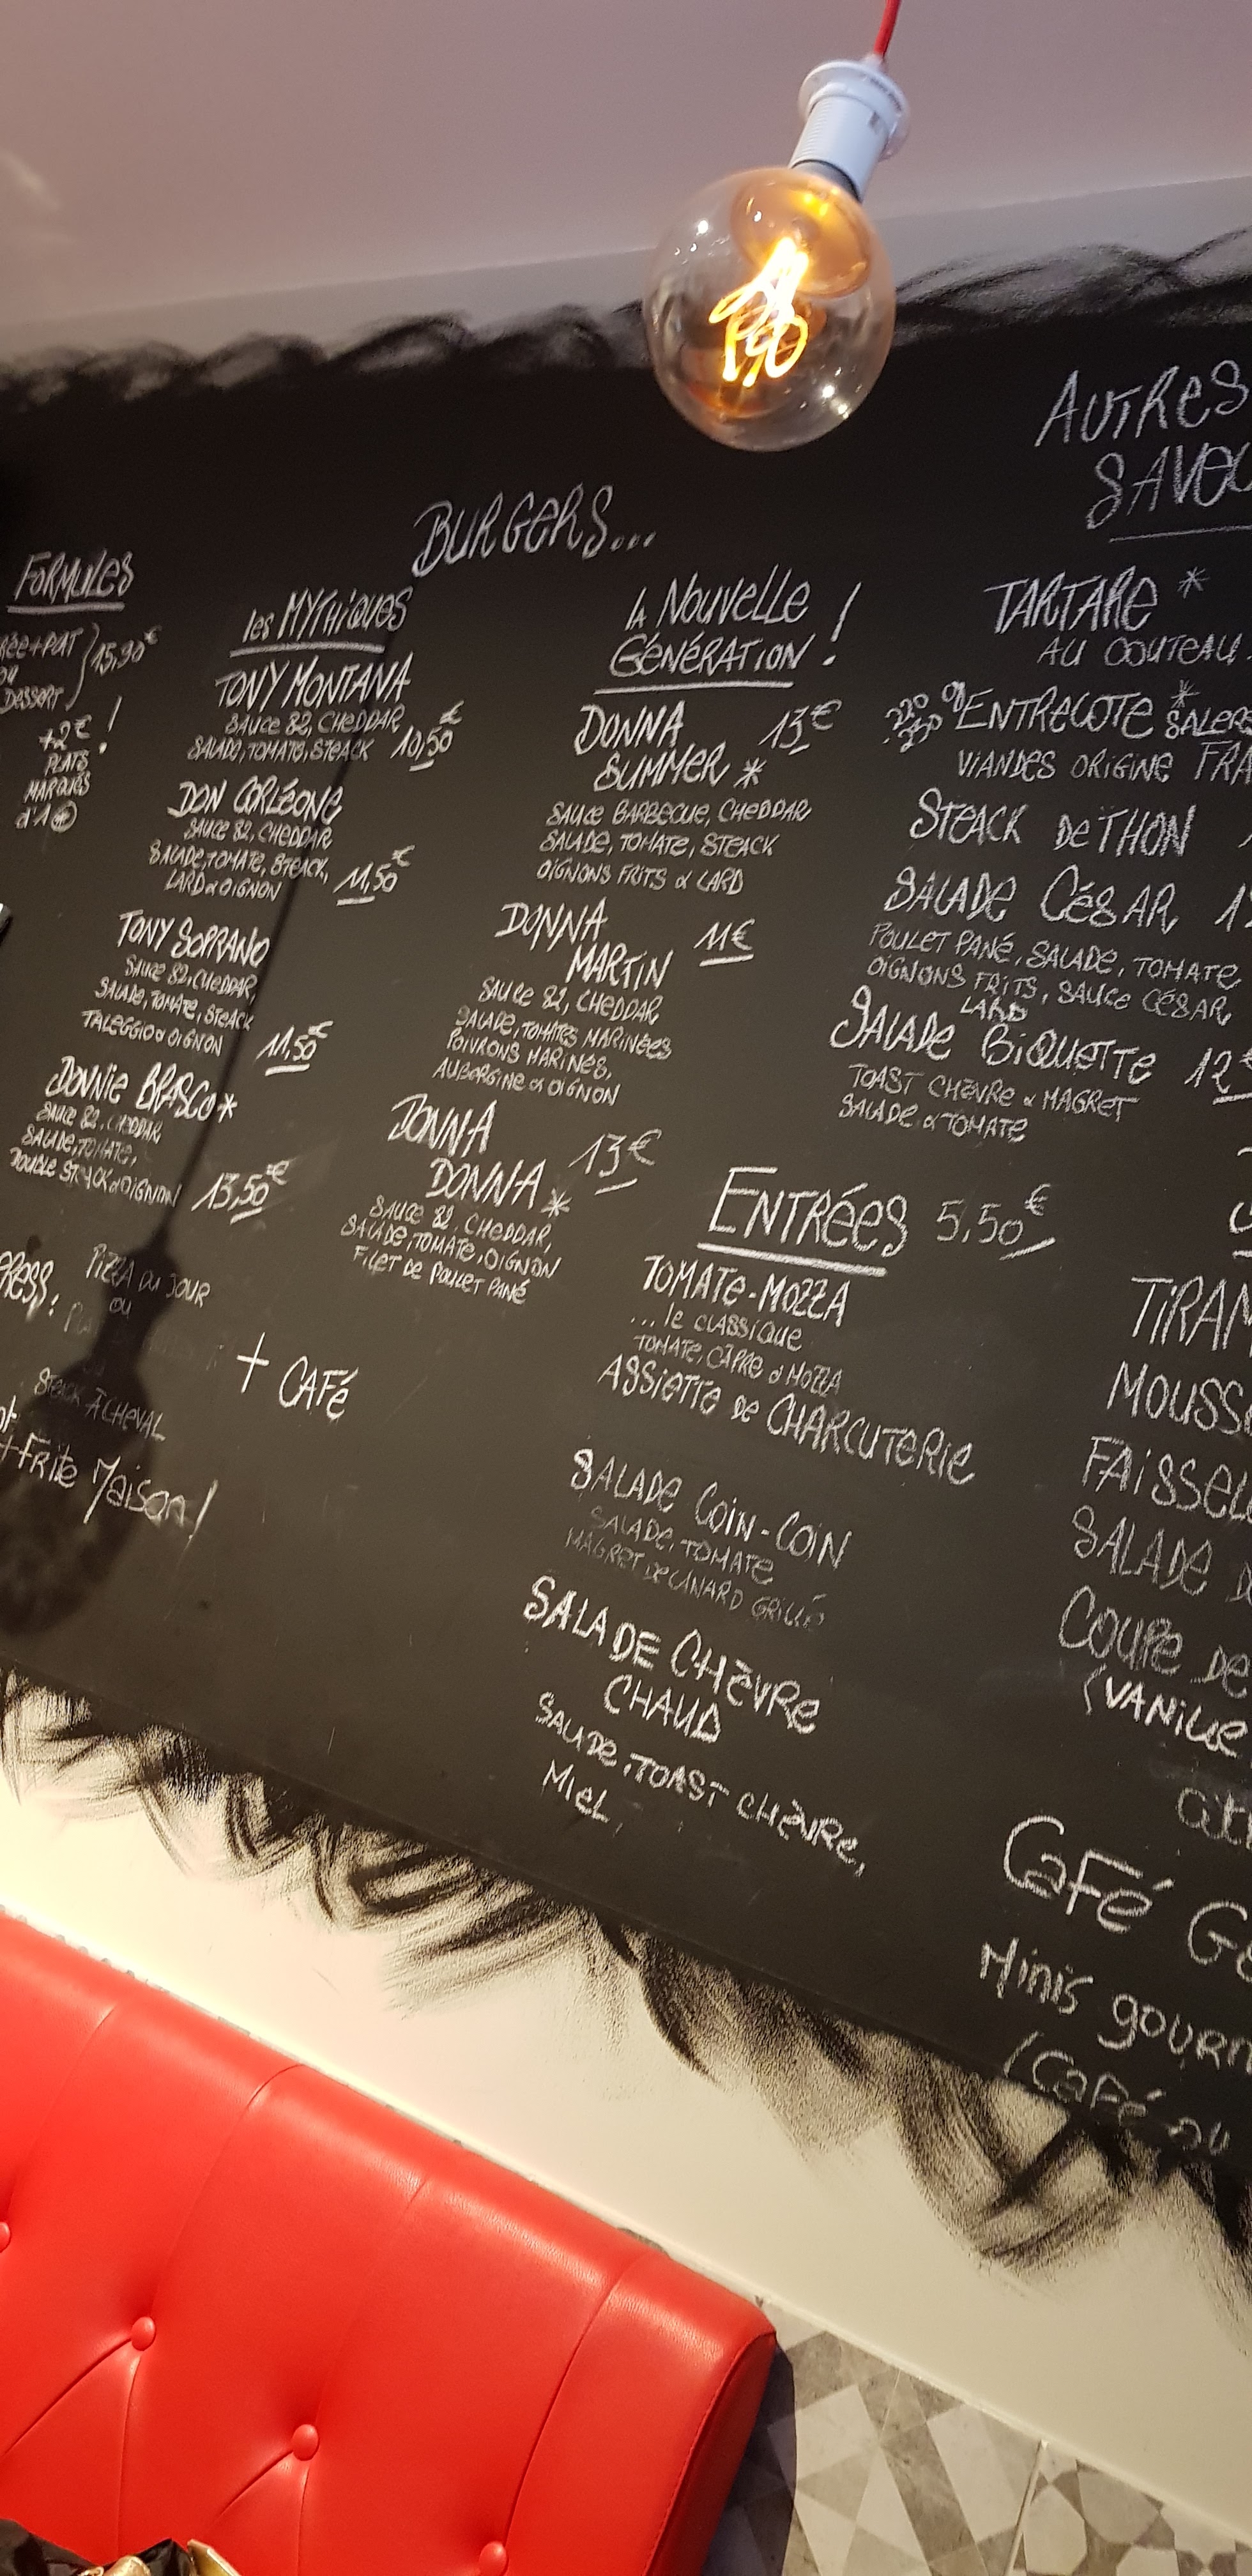 FORMULES
PLAT
15,90€
ou
DESSERT
+2€ !
PLATS
MARQUÉS
d'1 *
BURGERS...
les MYTHIQUES
TONY MONTANA
SAUCE 82, CHEDDAR
SALADE, TOMATE, STEACK 10,50€
DON CORLÉONE
SAUCE 82, CHEDDAR
SALADE, TOMATE, STEACK,
LARD & OIGNON 11,50€
TONY SOPRANO
SAUCE 82, CHEDDAR,
SALADE, TOMATE, STEACK
TALEGGIO & OIGNON 11,50€
DONNIE BRASCO*
SAUCE 82, CHEDDAR
SALADE, TOMATE,
DOUBLE STEACK & OIGNON 13,50€
PIZZA DU JOUR
ou
STEACK À CHEVAL
+ CAFÉ
+ FRITE Maison!
LA NOUVELLE
GÉNÉRATION !
DONNA 13€
SUMMER *
SAUCE BARBECUE, CHEDDAR
SALADE, TOMATE, STEACK
OIGNONS FRITS & LARD
DONNA 11€
MARTIN
SAUCE 82, CHEDDAR
SALADE, TOMATES MARINÉES
POIVRONS MARINÉS,
AUBERGINE & OIGNON
DONNA 13€
DONNA *
SAUCE 82, CHEDDAR,
SALADE, TOMATE, OIGNON
FILET DE POULET PANÉ
AUTRES
TARTARE *
AU COUTEAU
ENTRECOTE *
VIANDES ORIGINE
STEACK DE THON
SALADE CÉSAR
POULET PANÉ, SALADE, TOMATE
OIGNONS FRITS, SAUCE CÉSAR,
LARD
SALADE BIQUETTE 12€
TOAST CHÈVRE & MAGRET
SALADE & TOMATE
ENTRÉES 5,50€
TOMATE-MOZZA
...le CLASSIQUE
TOMATE, CÂPRE & MOZZA
ASSIETTE de CHARCUTERIE
SALADE COIN-COIN
SALADE, TOMATE
MAGRET DE CANARD GRILLÉ
SALADE CHÈVRE
CHAUD
SALADE, TOAST CHÈVRE,
MIEL,
SALADE
COUPE DE
(VANILLE
CaFé
Minis
(Café au